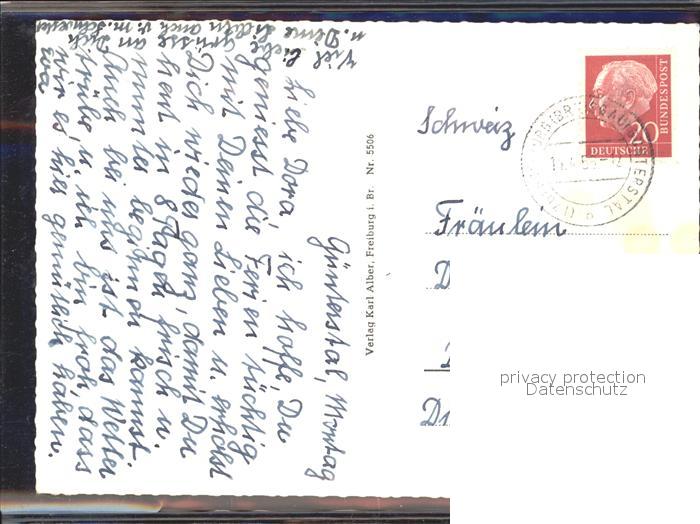 Günterstal, Montag
Liebe Dora ich hoffe, Du
geniesst die Ferien tüchtig
mit Deinen Lieben u. erholst
Dich wieder ganz, damit Du
heut in 8 Tagen frisch u.
munter beginnen kannst.
Auch bei uns ist das Wetter
trübe u. ich bin froh dass
wir es hier gemütlich haben.
Viel liebe Grüsse an Dich
u. Deine Lieben auch v. m. Schwester
Eva
Verlag Karl Alber, Freiburg i. Br. Nr. 5506
Schweiz
Fräulein
D
D
20
DEUTSCHE
BUNDESPOST
privacy protection
Datenschutz